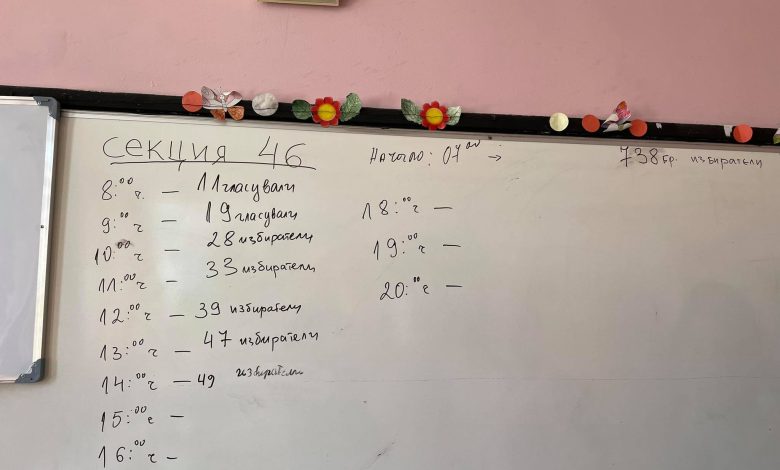 СЕКЦИЯ 46
Начало: 07⁰⁰ →
738 бр. избиратели
8:⁰⁰ ч. – 11 гласували
9:⁰⁰ ч – 19 гласували
10:⁰⁰ ч – 28 избиратели
11:⁰⁰ ч – 33 избиратели
12:⁰⁰ ч – 39 избиратели
13:⁰⁰ ч – 47 избиратели
14:⁰⁰ ч – 49 избиратели
15:⁰⁰ ч –
16:⁰⁰ ч –
18:⁰⁰ ч –
19:⁰⁰ ч –
20:⁰⁰ ч –